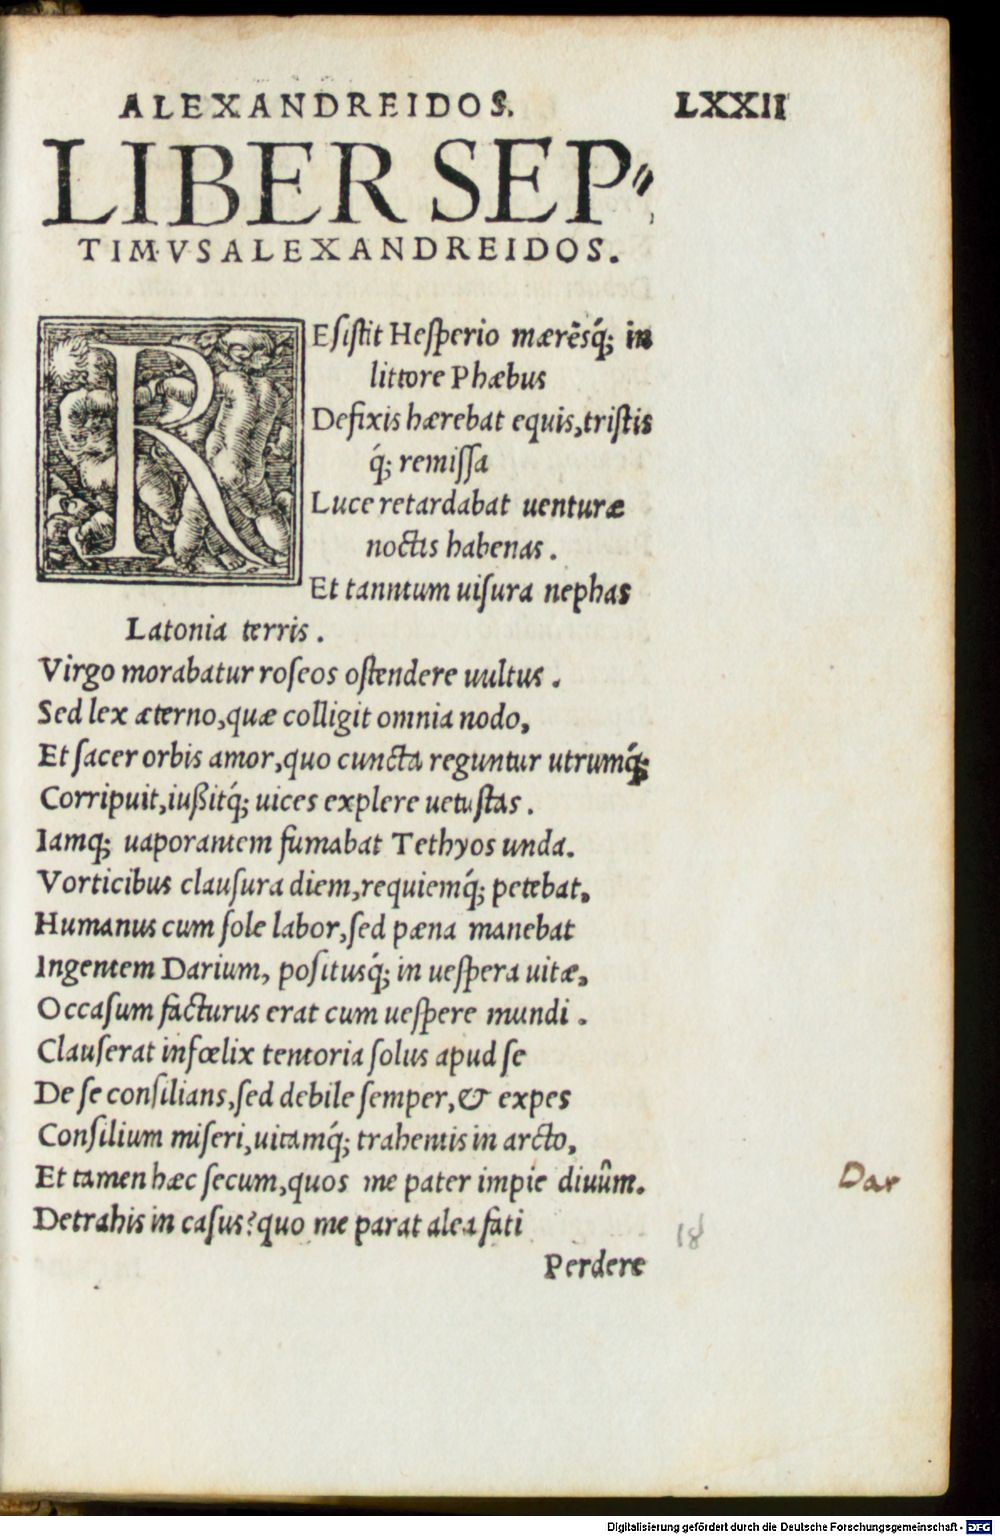 ALEXANDREIDOS. LXXII
LIBER SEP⸗
TIMVS ALEXANDREIDOS.
REſiſtit Heſperio mærẽsq́; in
littore Phæbus
Defixis hærebat equis,triſtis
q́; remiſſa
Luce retardabat uenturæ
noctis habenas.
Et tanntum uiſura nephas
Latonia terris.
Virgo morabatur roſeos oſtendere uultus.
Sed lex æterno,quæ colligit omnia nodo,
Et ſacer orbis amor,quo cuncta reguntur utrumq́;
Corripuit,iußitq́; uices explere uetuſtas.
Iamq; uaporantem fumabat Tethyos unda.
Vorticibus clauſura diem,requiemq́; petebat,
Humanus cum ſole labor,ſed pæna manebat
Ingentem Darium, poſitusq́; in ueſpera uitæ,
Occaſum facturus erat cum ueſpere mundi.
Clauſerat infœlix tentoria ſolus apud ſe
De ſe conſilians,ſed debile ſemper,& expes
Conſilium miſeri,uitamq́; trahentis in arcto,
Et tamen hæc ſecum,quos me pater impie diuûm.
Dar
Detrahis in caſus?quo me parat alea fati
18
Perdere
Digitalisierung gefördert durch die Deutsche Forschungsgemeinschaft - DFG